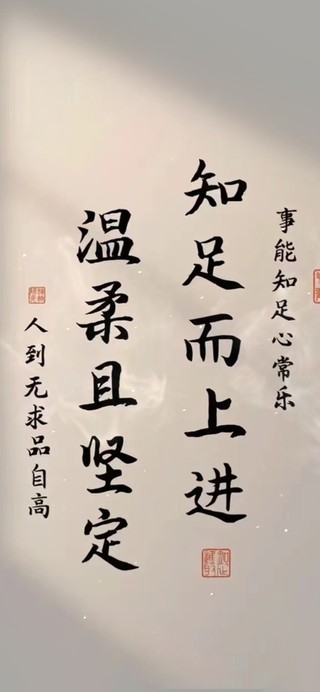 事能知足心常乐
知足而上进
温柔且坚定
人到无求品自高